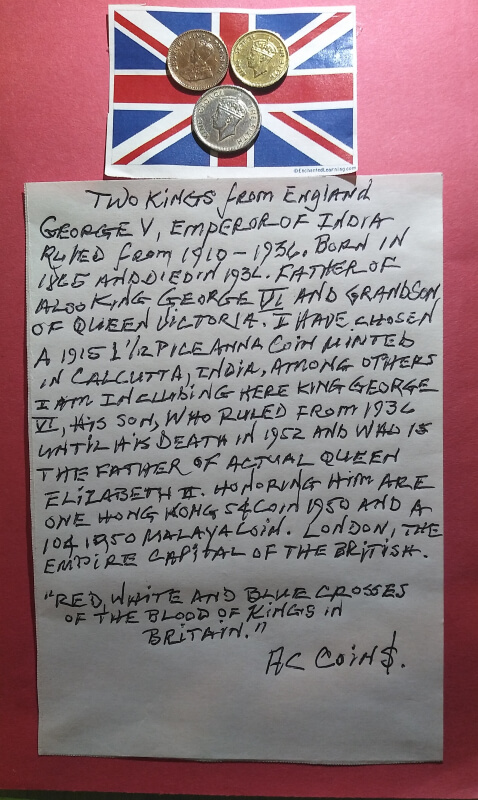 ©EnchantedLearning.com
TWO KINGS from ENGLAND
GEORGE V, EMPEROR OF INDIA
RULED from 1910-1936. BORN IN
1865 AND DIED IN 1936. FATHER OF
ALSO KING GEORGE VI AND GRANDSON
OF QUEEN VICTORIA. I HAVE CHOSEN
A 1915 1/12 PICE ANNA COIN MINTED
IN CALCUTTA, INDIA, AMONG OTHERS
I AM INCLUDING HERE KING GEORGE
VI, HIS SON, WHO RULED FROM 1936
UNTIL HIS DEATH IN 1952 AND WHO IS
THE FATHER OF ACTUAL QUEEN
ELIZABETH II. HONORING HIM ARE
ONE HONG KONG 5¢ COIN 1950 AND A
10¢ 1950 MALAYA COIN. LONDON, THE
EMPIRE CAPITAL OF THE BRITISH.
"RED, WHITE AND BLUE CROSSES
OF THE BLOOD OF KINGS IN
BRITAIN."
AC COIN$.